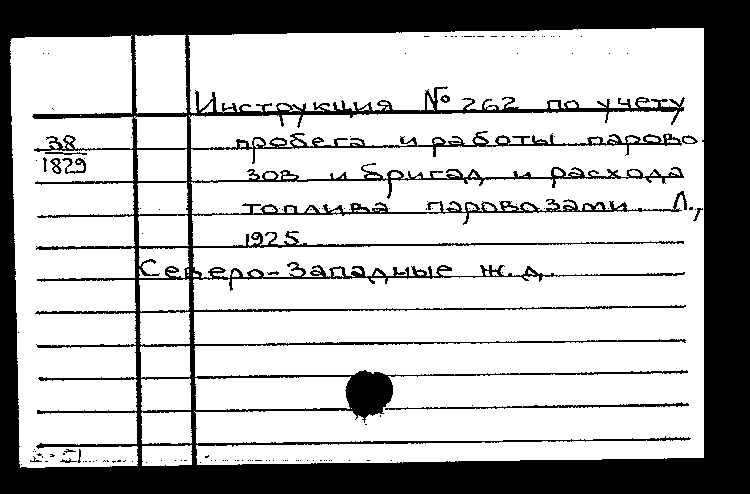 Инструкция № 262 по учету
38
1829
пробега и работы парово-
зов и бригад и расхода
топлива паровозами. Л.,
1925.
Северо-Западные ж.д.